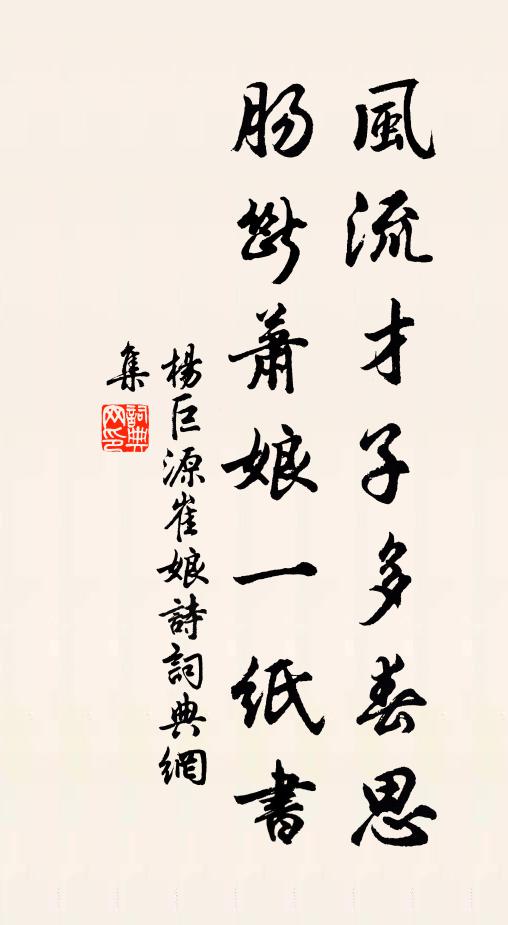 風流才子多春思
腸斷蕭娘一紙書
楊巨源崔娘詩詞典網
集
詞典網印